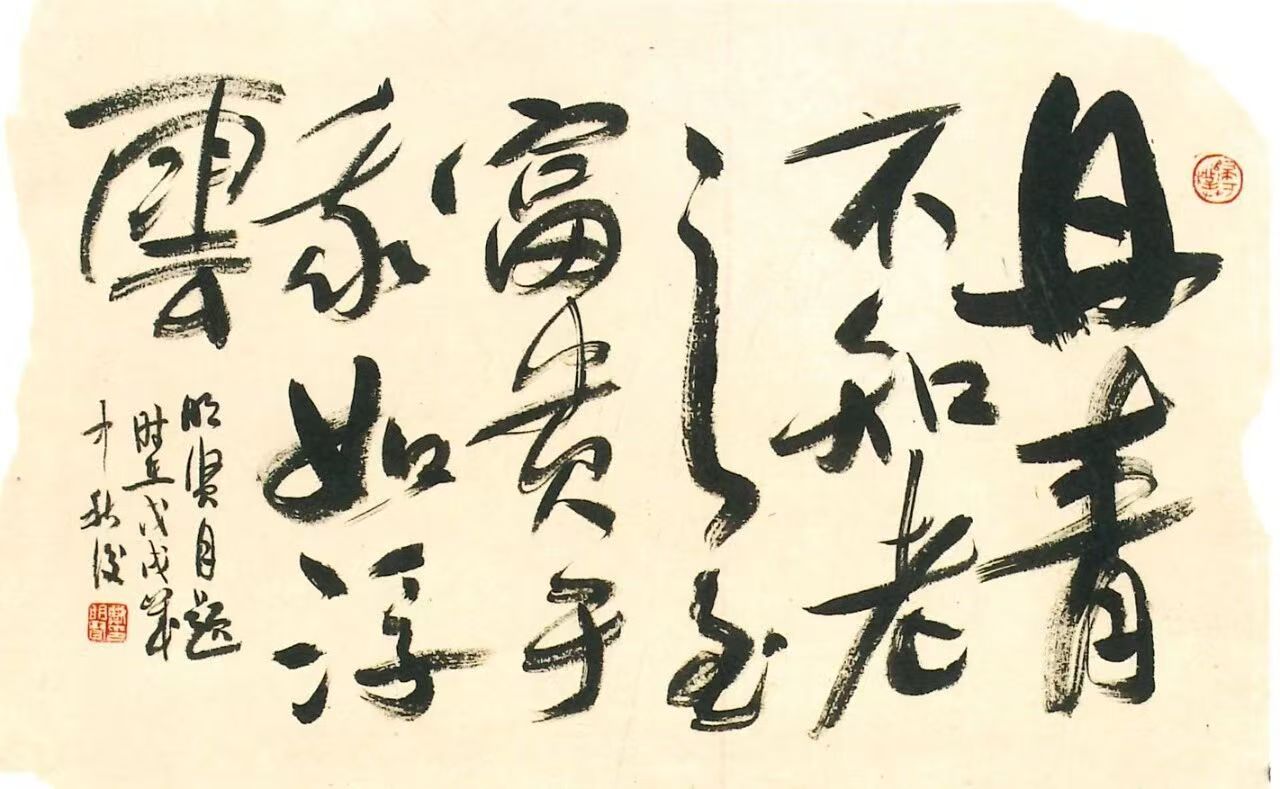 丹青
不知老
之至
富贵于
我如浮
雲
明贤自题
时在戊戌岁
中秋後